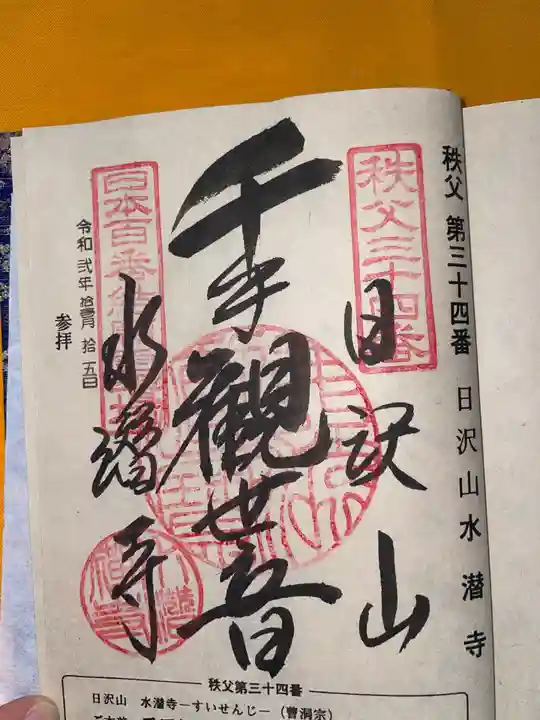 秩父 第三十四番 日沢山水潜寺
秩父三十四番
日沢山
千手観世音
水潜寺
令和弐年 拾壱月 拾五日
参拝
秩父第三十四番
日沢山 水潜寺ーすいせんじー(曹洞宗)